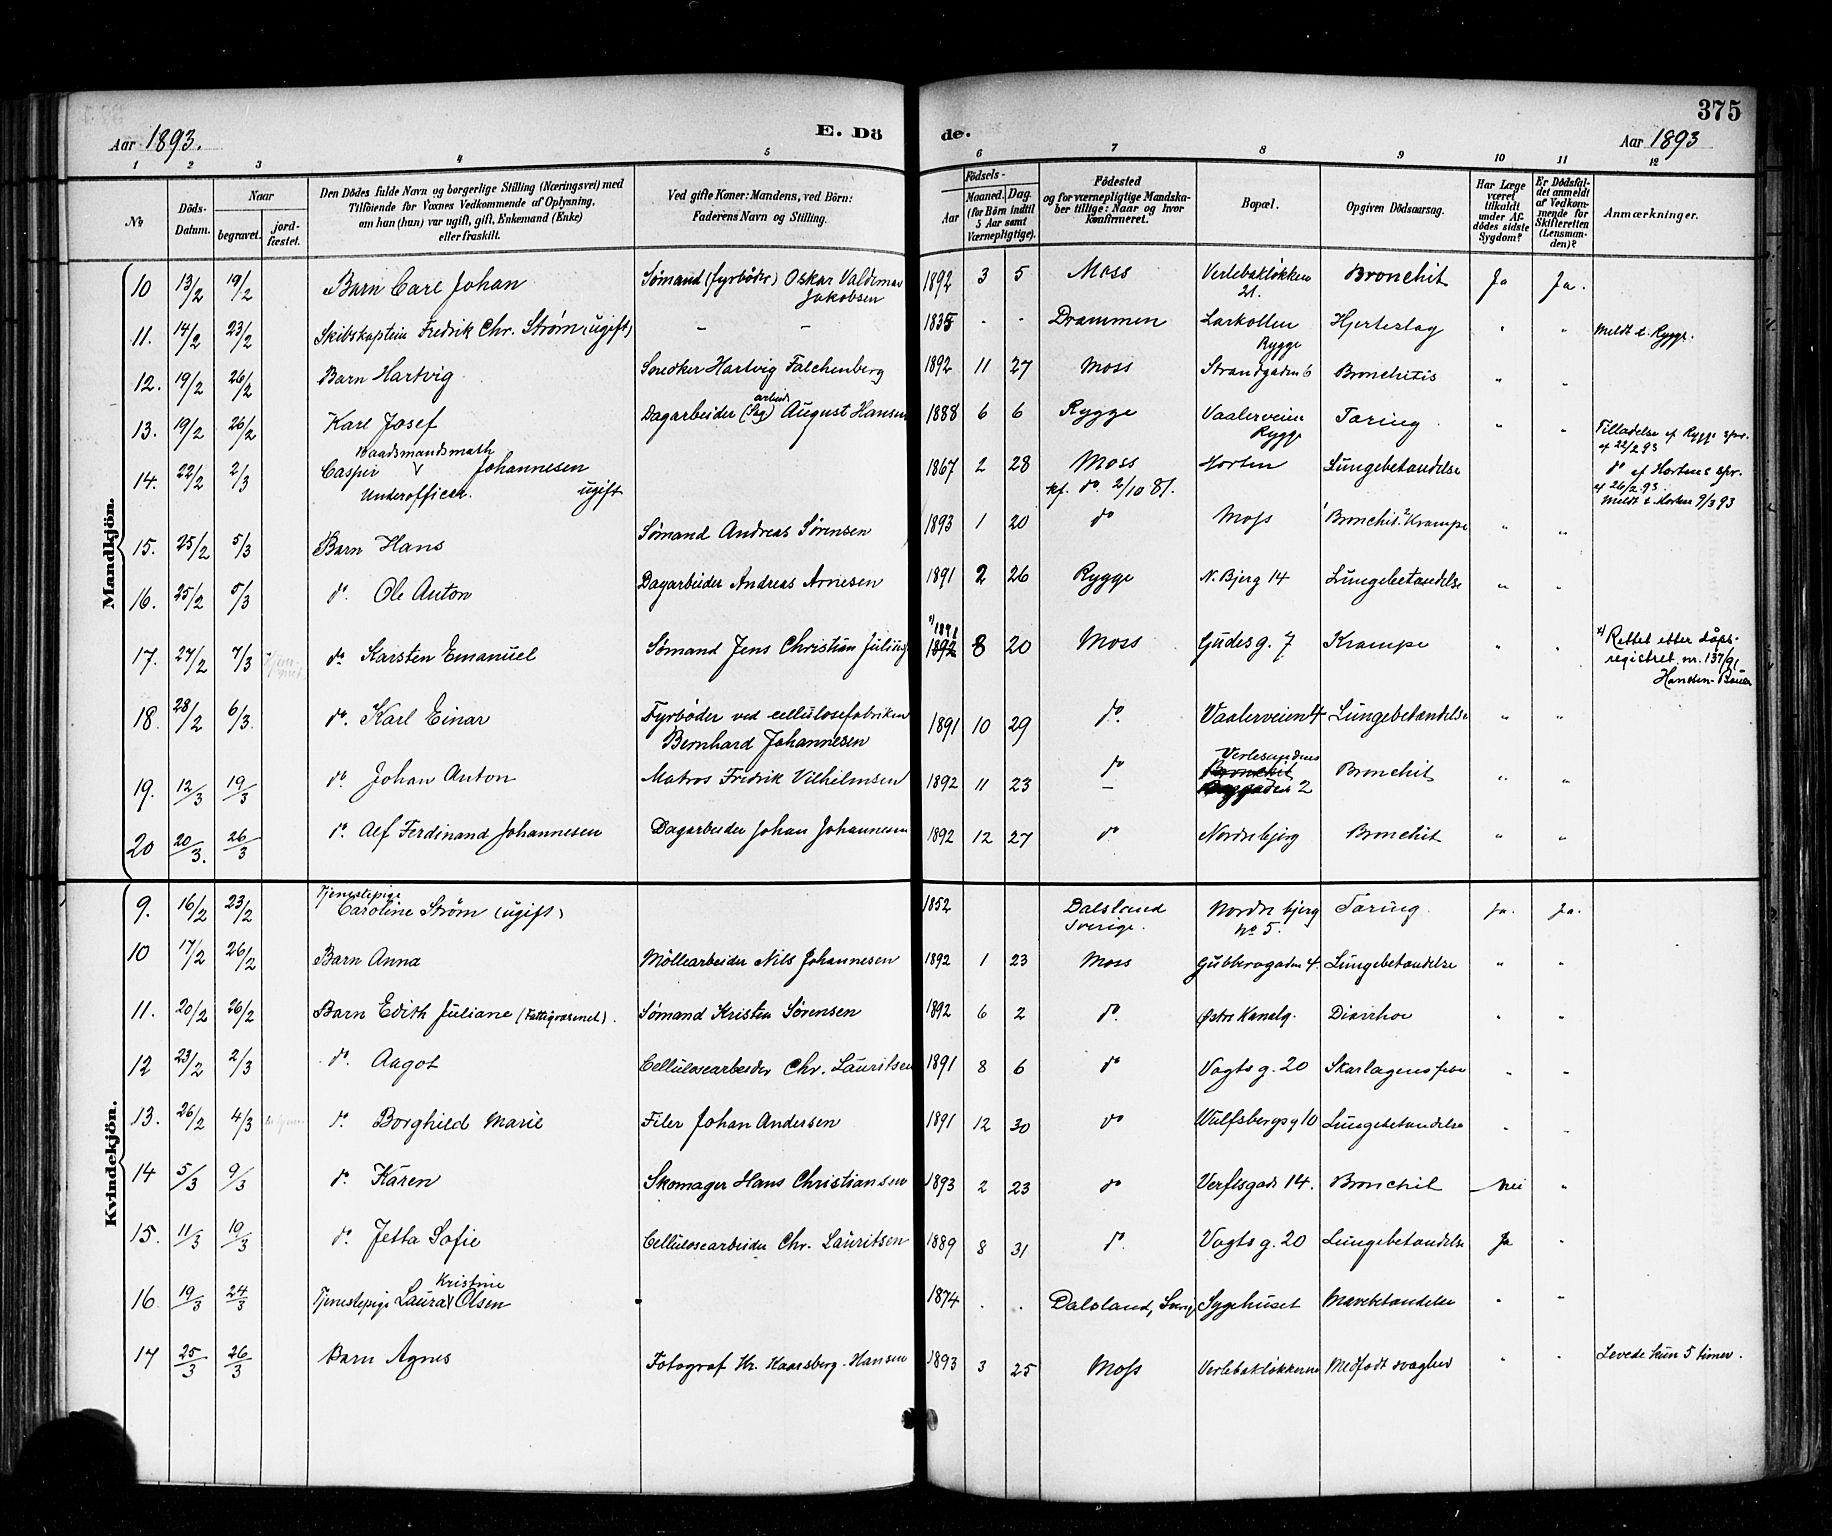 375
Aar 1893. E. Dö de. Aar 1893
1 2 3 4 5 6 7 8 9 10 11 12
No
Döds-Datum.
Naar
begravet.
jordfæstet.
Den Dödes fulde Navn og borgerlige Stilling (Næringsvei) med
Tilföiende for Voxnes Vedkommende af Oplysning,
om han (hun) var ugift, gift, Enkemand (Enke)
eller fraskilt.
Ved gifte Koner: Mandens, ved Börn:
Faderens Navn og Stilling.
Födsels-
Aar
Maaned. Dag.
(for Börn indtil
5 Aar samt
Værnepligtige).
Födested
og for værnepligtige Mandskaber tillige: Naar og hvor
Konfirmeret.
Bopæl.
Opgiven Dödsaarsag.
Har Læge
været
tilkaldt
under Afdödes sidste
Sygdom?
Er Dödsfaldet anmeldt
af Vedkommende for
Skifteretten
(Lensmanden)?
Anmærkninger.
Mandkjön.
10 13/2 19/2 Barn Carl Johan Sømand (fyrbøder) Oskar Valdemar Jakobsen 1892 3 5 Moss Verlebakløkken 21. Bronchit Ja Ja.
11. 14/2 23/2 Skibskaptein Fredrik Chr. Strøm (ugift) - - 1835 - - Drammen Larkollen Rygge Hjerteslag " " Meldt t. Rygge.
12. 19/2 26/2 Barn Hartvig Snedker Hartvig Falchenberg 1892 11 27 Moss Strandgaden 6 Bronchitis " "
13. 19/2 26/2 Karl Josef Dagarbeider (Sagarbeid) August Hansen 1888 6 6 Rygge Vaalerveien Rygge Tæring " " Tilladelse af Rygge spr. af 22/2 93
14. 22/2 2/3 Casper Baadsmandsmath Johannesen Underofficer. ugift 1867 2 28 Moss kf. do. 2/10 81. Horten Lungebetændelse do af Hortens spr. af 26/2 93. Meldt t Horten 9/3 93
15. 25/2 5/3 Barn Hans Sømand Andreas Sørensen 1893 1 20 do Moss 1 Bronchit. 2 Krampe " "
16. 25/2 5/3 do. Ole Anton Dagarbeider Andreas Arnesen 1891 2 26 Rygge N. Bjerg 14 Lungebetændelse " "
17. 27/2 7/3 do. Karsten Emanuel Sømand Jens Christian Julius x) 1891 1892 8 20 Moss Gudes g. 7 Krampe " " x) Rettet etter dåps-
registret nr. 137/91
Hansen-Bauer
18. 28/2 6/3. do. Karl Einar Fyrbøder ved cellulosefabriken Bernhard Johannesen 1891 10 29 do. Vaalerveien 4 Lungebetændelse " "
19. 12/3 19/3 do. Johan Anton Matros Fredrik Vilhelmsen 1892 11 23 do Verlesandens Bronchit 2 Bronchit " "
20 20/3. 26/3 do. Alf Ferdinand Johannesen Dagarbeider Johan Johannesen 1892 12 27 do Nordre bjerg Bronchit " "
Kvindekjön.
9. 16/2 23/2 Tjenestepige Caroline Strøm (ugift) 1852 Dalsland Sverige. Nordre bjerg No 5. Tæring. Ja. Ja.
10 17/2 26/2 Barn Anna Møllearbeider Nils Johannesen 1892 1 23 Moss Gubberogaden 4. Lungebetændelse " "
11. 20/2 26/2 Barn Edith Juliane (Fattigvæsenet). Sømand Kristen Sørensen 1892 6 2 do. Østre Kanalg. Diarrhoe " "
12 23/2 2/3 do. Aagot Cellulosearbeider Chr. Lauritsen 1891 8 6 do Vogts g. 20 Skarlagensfeber " "
13. 26/2 4/3 do. Borghild Marie Filer Johan Andersen 1891 12 30 do Wulfsbergs g 10 Lungebetændelse " "
14 5/3 9/3 do. Karen Skomager Hans Christiansen 1893 2 23 do Verftsgade 14. Bronchit Nei "
15. 11/3 19/3 do. Jetta Sofie Cellulosearbeider Chr. Lauritsen 1889 8 31 do. Vogts g. 20 Lungebetændelse Ja "
16 19/3 24/3 Tjenestepige Laura Kristine Olsen 1874 . . Dalsland, Sverig Sygehuset Mavebetændelse " "
17 25/3 26/3 Barn Agnes Fotograf Kr. Haarsberg-Hansen 1893 3 25 Moss Verlebakløkkerne Medfødt svaghed " " Levede kun 5 timer.